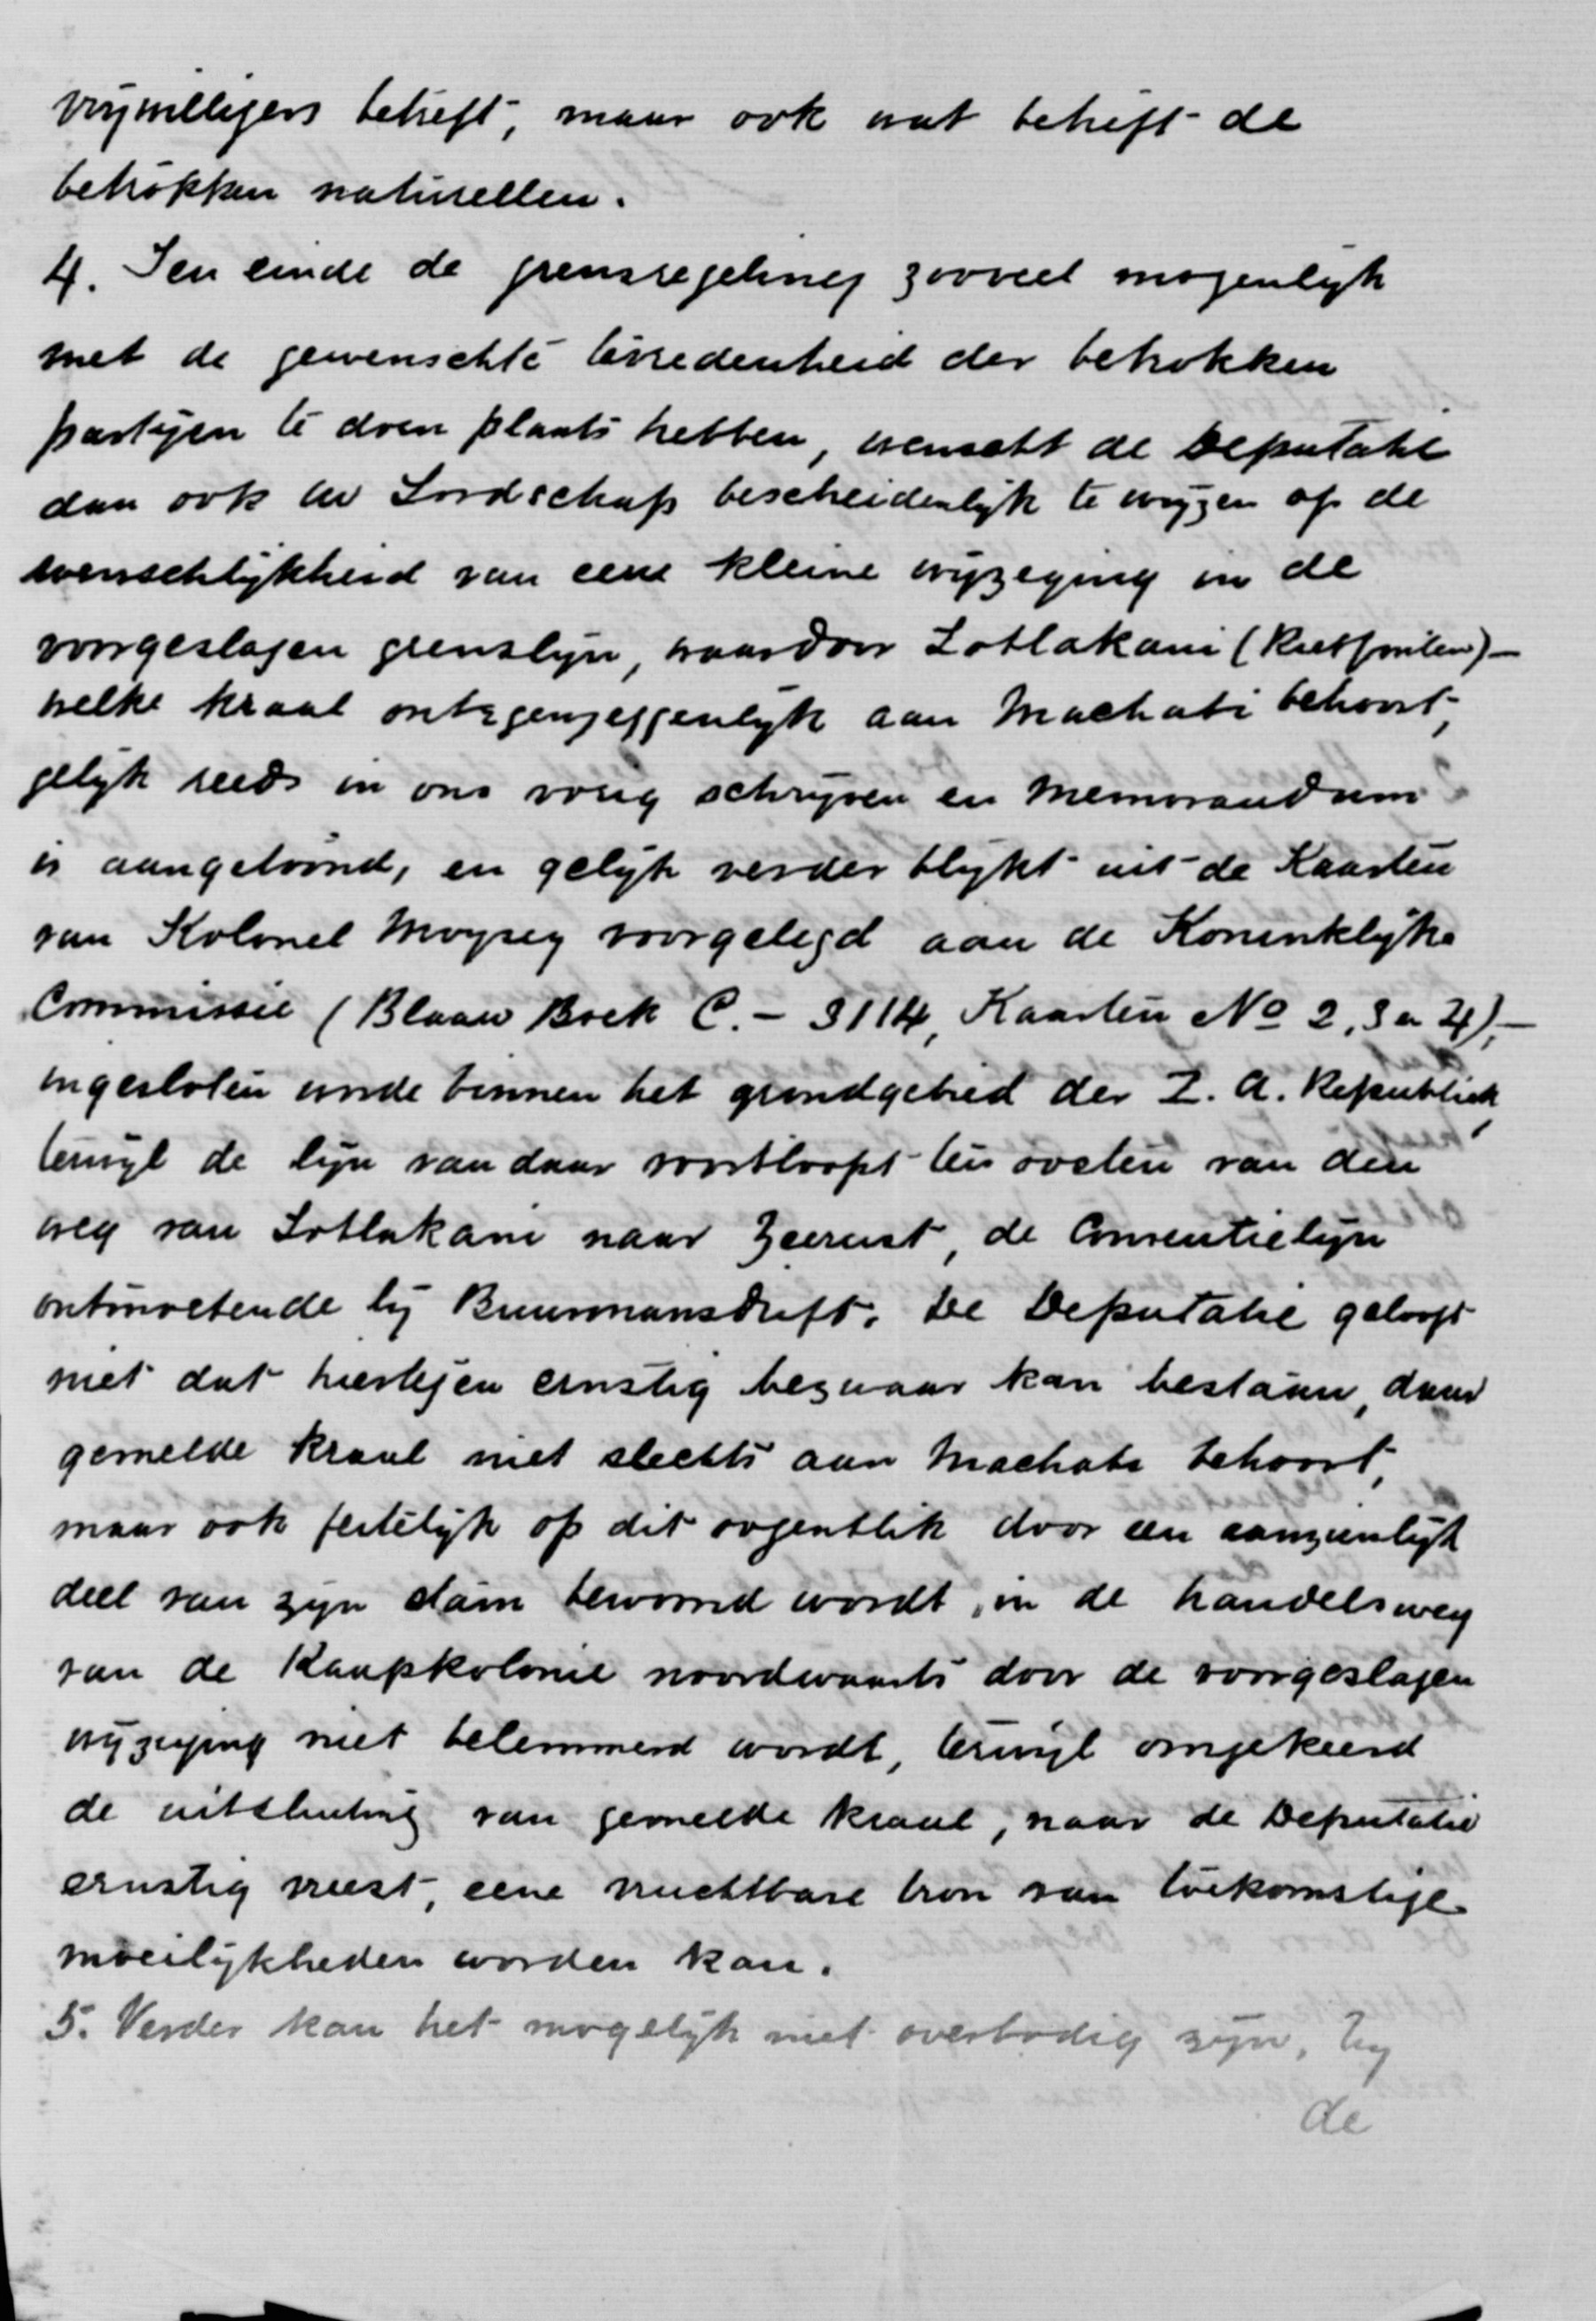 vrijwilligers betreft, maar ook wat betreft de
betrokken naturellen.
4. Ten einde de grensregeling zooveel mogenlijk
met de gewenschte tevredenheid der betrokken
partijen te doen plaats hebben, wenscht de Deputatie
dan ook uw Lordschap bescheidenlijk te wijzen op de
wenschlijkheid van eene kleine wijzeging in de
voorgeslagen grenslijn, waardoor Lotlakani (Rietfontein) -
welke kraal ontegenzeggenlijk aan Machabi behoort,
gelijk reeds in ons vorig schrijven en Memorandum
is aangetoond, en gelijk verder blijkt uit de Kaarten
van Kolonel Moysey voorgelegd aan de Koninklijke
Commissie (Blaauw Boek C. - 3114, Kaarten No 2, 3 en 4), -
ingesloten worde binnen het grondgebied der Z. A. Republiek,
terwijl de lijn van daar voortloopt ten oosten van den
weg van Lotlakani naar Zeerust, de Conventielijn
ontmoetende bij Buurmansdrift. De Deputatie gelooft
niet dat hiertegen ernstig bezwaar kan bestaan, daar
gemelde kraal niet slechts aan Machabi behoort,
maar ook feitelijk op dit oogenblik door een aanzienlijk
deel van zijn stam bewoond wordt, en de handelsweg
van de Kaapkolonie noordwaarts door de voorgeslagen
wijzeging niet belemmerd wordt, terwijl omgekeerd
de uitsluiting van gemelde kraal, naar de Deputatie
ernstig vreest, eene vruchtbare bron van toekomstige
moeilijkheden worden kan.
5. Verder kan het mogelijk niet overbodig zijn, bij
de